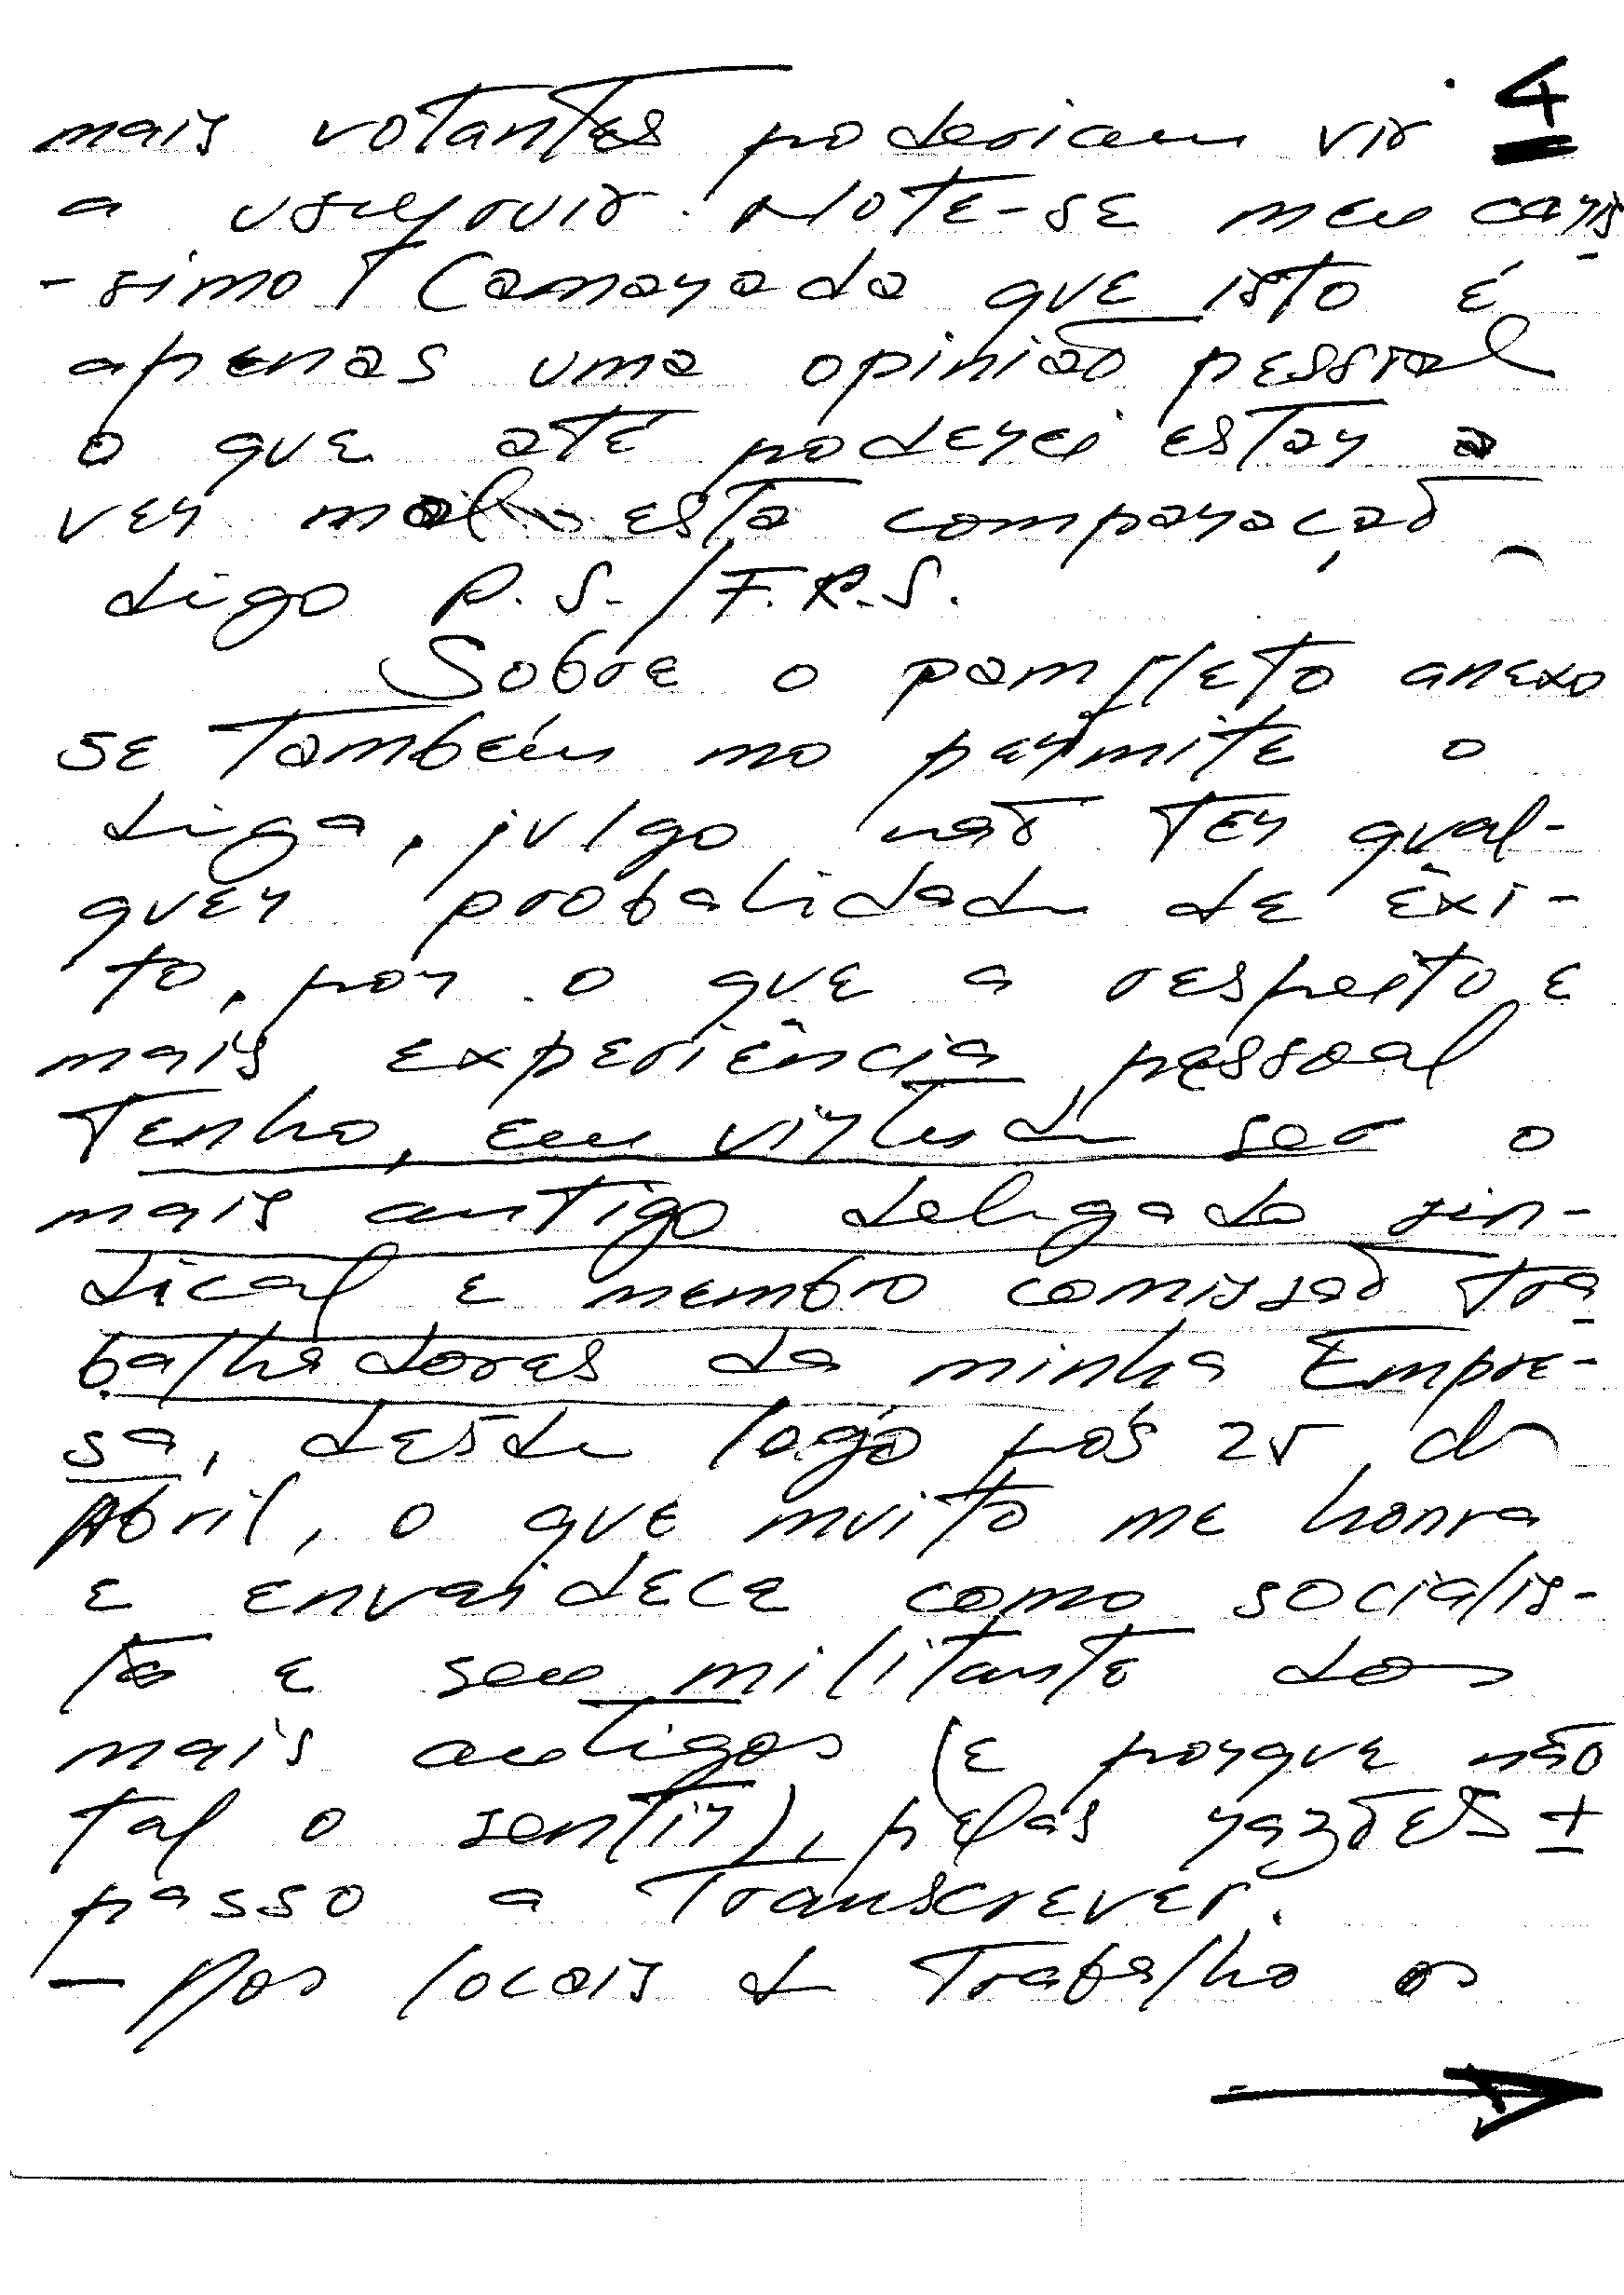 mais votantes poderiam vir 4
a usufruir. Note-se meu carís
-simo Camarada que isto é
apenas uma opinião pessoal
o que até poderei estar a
ver mal esta comparação
digo P.S./F.R.S.
Sobre o panfleto anexo
se também mo permite o
diga, julgo não ter qual-
quer probalidade de êxi-
to, por o que a respeito e
mais experiência pessoal
Tenho, em virtude ser o
mais antigo delegado sin-
dical e membro comissão Tra-
balhadores da minha Empre-
sa, desde logo pós 25 de
Abril, o que muito me honra
e envaidece como socialis-
ta e seu militante dos
mais antigos (e porque não
tal o sentir), pelas razões ±
passo a Transcrever.
- Nos locais de Trabalho os